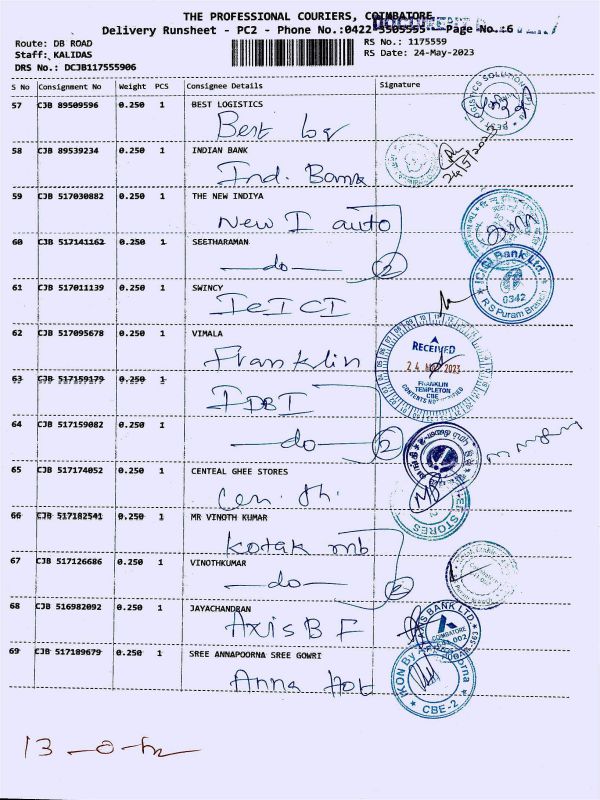 THE PROFESSIONAL COURIERS, COIMBATORE
Delivery Runsheet - PC2 - Phone No.:0422 3505555 Page No.:6
Route: DB ROAD
RS No.: 1175559
Staff: KALIDAS
RS Date: 24-May-2023
DRS No.: DCJB117555906
S No Consignment No Weight PCS Consignee Details Signature
57 CJB 89509596 0.250 1 BEST LOGISTICS
Best
58 CJB 89539234 0.250 1 INDIAN BANK
Ind. Bank
24/5/2023
59 CJB 517030882 0.250 1 THE NEW INDIYA
New I auto
60 CJB 517141162 0.250 1 SEETHARAMAN
—do— 2
ICICI Bank Ltd.
0342
R S Puram Branch
61 CJB 517011139 0.250 1 SWINCY
ICICI
62 CJB 517095678 0.250 1 VIMALA
Franklin
RECEIVED
24 2023
FRANKLIN
TEMPLETON
CBE
63 CJB 517159179 0.250 1
IDBI
64 CJB 517159082 0.250 1
—do— 2
65 CJB 517174052 0.250 1 CENTEAL GHEE STORES
Cen. Gh.
STORES
66 CJB 517182541 0.250 1 MR VINOTH KUMAR
Kotak mb
67 CJB 517126686 0.250 1 VINOTHKUMAR
—do— 2
68 CJB 516982092 0.250 1 JAYACHANDRAN
Axis B F
AXIS BANK LTD.
COIMBATORE
69 CJB 517189679 0.250 1 SREE ANNAPOORNA SREE GOWRI
Anna Hot
CBE-2